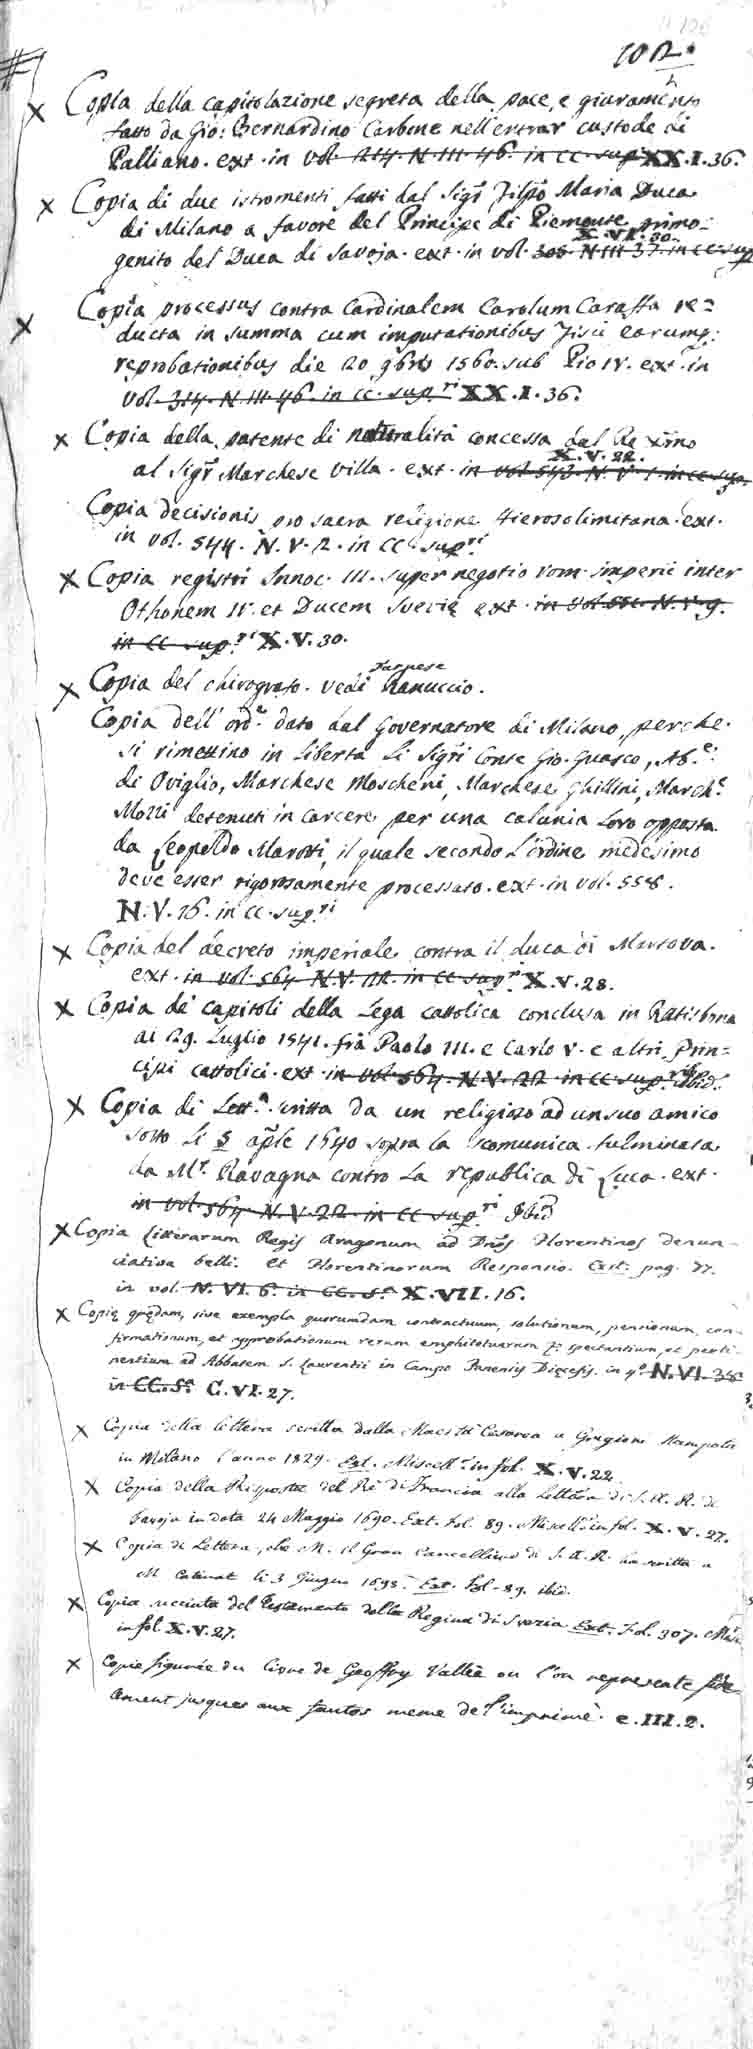 102.
Copia della capitolazione segreta della pace, e giuramento
fatto da Gio: Bernardino Carbone nell'entrar custode di
Palliano. ext. in vol. 214. N. III. 46. in CC. sup.ri XX.I.36.
Copia di due istromenti fatti dal Sigr. Filpo Maria Duca
di Milano a favore del Principe di Piemonte primo=
X.VI.30.
genito del Duca di Savoja. ext. in vol. 305. N. III. 37. in CC. sup
Copia processus contra Cardinalem Carolum Caraffa re=
ducta in summa cum imputationibus Fisci earumq:
reprobationibus die 20 9bris 1560. sub Pio IV. ext. in
vol. 314. N. III. 46. in CC. sup.ri XX.I.36.
Copia della patente di naturalità concessa dal Re Xmo
X.V.22.
al Sigr. Marchese Villa. ext. in vol. 543. N. V. 1. in CC. sup.
Copia decisionis pro sacra religione Hierosolimitana. ext.
in vol. 544. N. V. 2. in CC. sup.ri
Copia registri Innoc. III. super negotio Rom. imperii inter
Othonem IV. et Ducem Svevię ext. in vol. 551. N. V. 9.
in CC. sup.ri X.V.30.
Farnese
Copia del chirografo. vedi Ranuccio.
Copia dell'ord.e dato dal Governatore di Milano, perche
si rimettino in libertà li Sigri Conte Gio. Guasco, Ab.e
di Oviglio, Marchese Moscheni, Marchese Ghillini, March.e
Mozzi detenuti in carcere per una calunia loro opposta
da Leopoldo Marotti, il quale secondo l'ordine medesimo
deve esser rigorosamente processato. ext. in vol. 558.
N. V. 16. in CC. sup.ri
Copia del decreto imperiale contra il duca di Mantova.
ext. in vol. 564 N. V. 22. in CC sup.ri X.V.28.
Copia de' capitoli della Lega cattolica conclusa in Ratisbona
ai 29. Luglio 1541. frà Paolo III. e Carlo V. e altri Prin=
cipi cattolici. ext. in vol 564. N. V. 22 in CC sup.ri Ibid.
Copia di Lett.a scritta da un religioso ad un suo amico
sotto li 5 aple 1540 sopra la scomunica fulminata
da Mr. Ravagna contro la republica di Luca. ext.
in vol. 564. N. V. 22. in CC sup.ri Ibid
Copia Litterarum Regis Aragonum ad Dnos Florentinos denun=
ciativa belli. et Florentinorum Responsio. Ext. pag. 77.
in vol. N. VI. 6. in CC. S.a X.VII.16.
Copię quędam, sive exempla quorumdam contractuum, solutionum, pensionum, con=
firmationum, et approbationum rerum emphiteuticarum spectantium, et perti=
nentium ad Abbatem S. Laurentii in Campo Panensis Diœcesis. in 4o N. VI. 38
in CC. S.a C.VI.27.
Copia della lettera scritta dalla Maestà Cesarea a Grigioni stampata
in Milano l'anno 1629. Ext. Miscell.a in fol. X.V.22.
Copia della Risposta del Rè di Francia alla Lettera di S. A. R. di
Savoja in data 24 Maggio 1690. Ext. fol. 89. Miscell.a in fol. X.V.27.
Copia di Lettera, che M. il Gran Cancelliere di S. A. R. ha scritta a
M. Catinat li 3 Giugno 1693. Ext. fol. 89. ibid.
Copia succinta del Testamento della Regina di Svezia. Ext. Fol. 307. Misc.
in fol. X.V.27.
Copie figurée du Livre de Geoffroy Vallée ou l'on represente fide=
lement jusques aux fautes meme de l'imprimé. e.III.2.